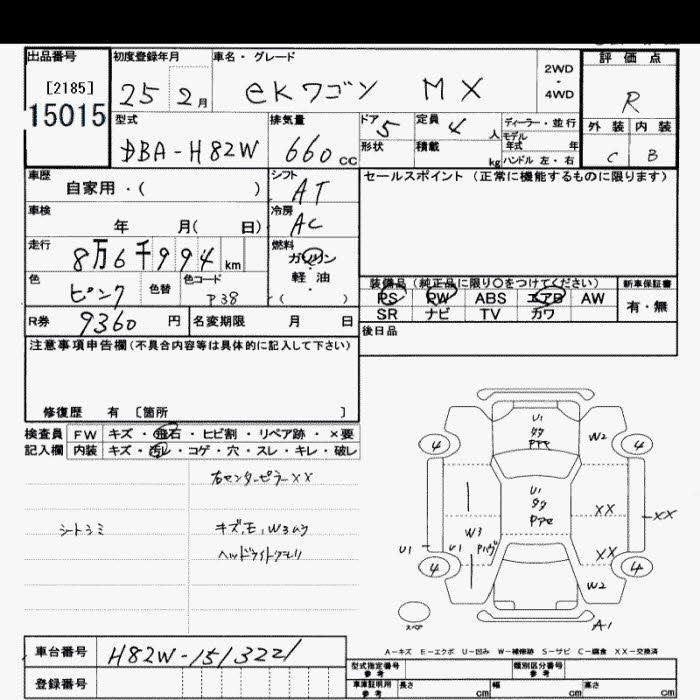 出品番号 初度登録年月 車名・グレード 2WD ・ 4WD 評価点
[2185]
15015 25 2月 eKワゴン MX R
型式 排気量 ドア 定員 ディーラー・並行 外装 内装
DBA-H82W 660cc 5 4人 モデル年式 年 C B
形状 積載 kg ハンドル 左・右
車歴 シフト セールスポイント (正常に機能するものに限ります)
自家用・( ) AT
車検 冷房
年 月( 日) AC
走行 燃料
8万6千994km ガソリン
・
軽油
( )
色 色替 色コード
ピンク P38
装備品 (純正品に限り○をつけてください) 新車保証書
PS PW ABS エアB AW 有・無
SR ナビ TV カワ
R券 9360円 名変期限 月 日
後日品
注意事項申告欄(不具合内容等は具体的に記入して下さい)
修復歴 有 〔箇所 〕
検査員 FW キズ・飛石・ヒビ割・リペア跡・×要
記入欄 内装 キズ・汚レ・コゲ・穴・スレ・キレ・破レ
右センターピラーXX
シートシミ キズ,モ,W3ムラ
ヘッドライトクモリ
U1
タタ
4 W2 4
U1
タタ
XX XX
W3
U1 U1 XX
4 W2 4
スペア A1
A-キズ E-エクボ U-凹み W-補修跡 S-サビ C-腐食 XX-交換済
車台番号 H82W-1513221
登録番号
型式指定番号 参考 類別区分番号 参考
車庫証明用 参考 長さ cm 幅 cm 高さ cm